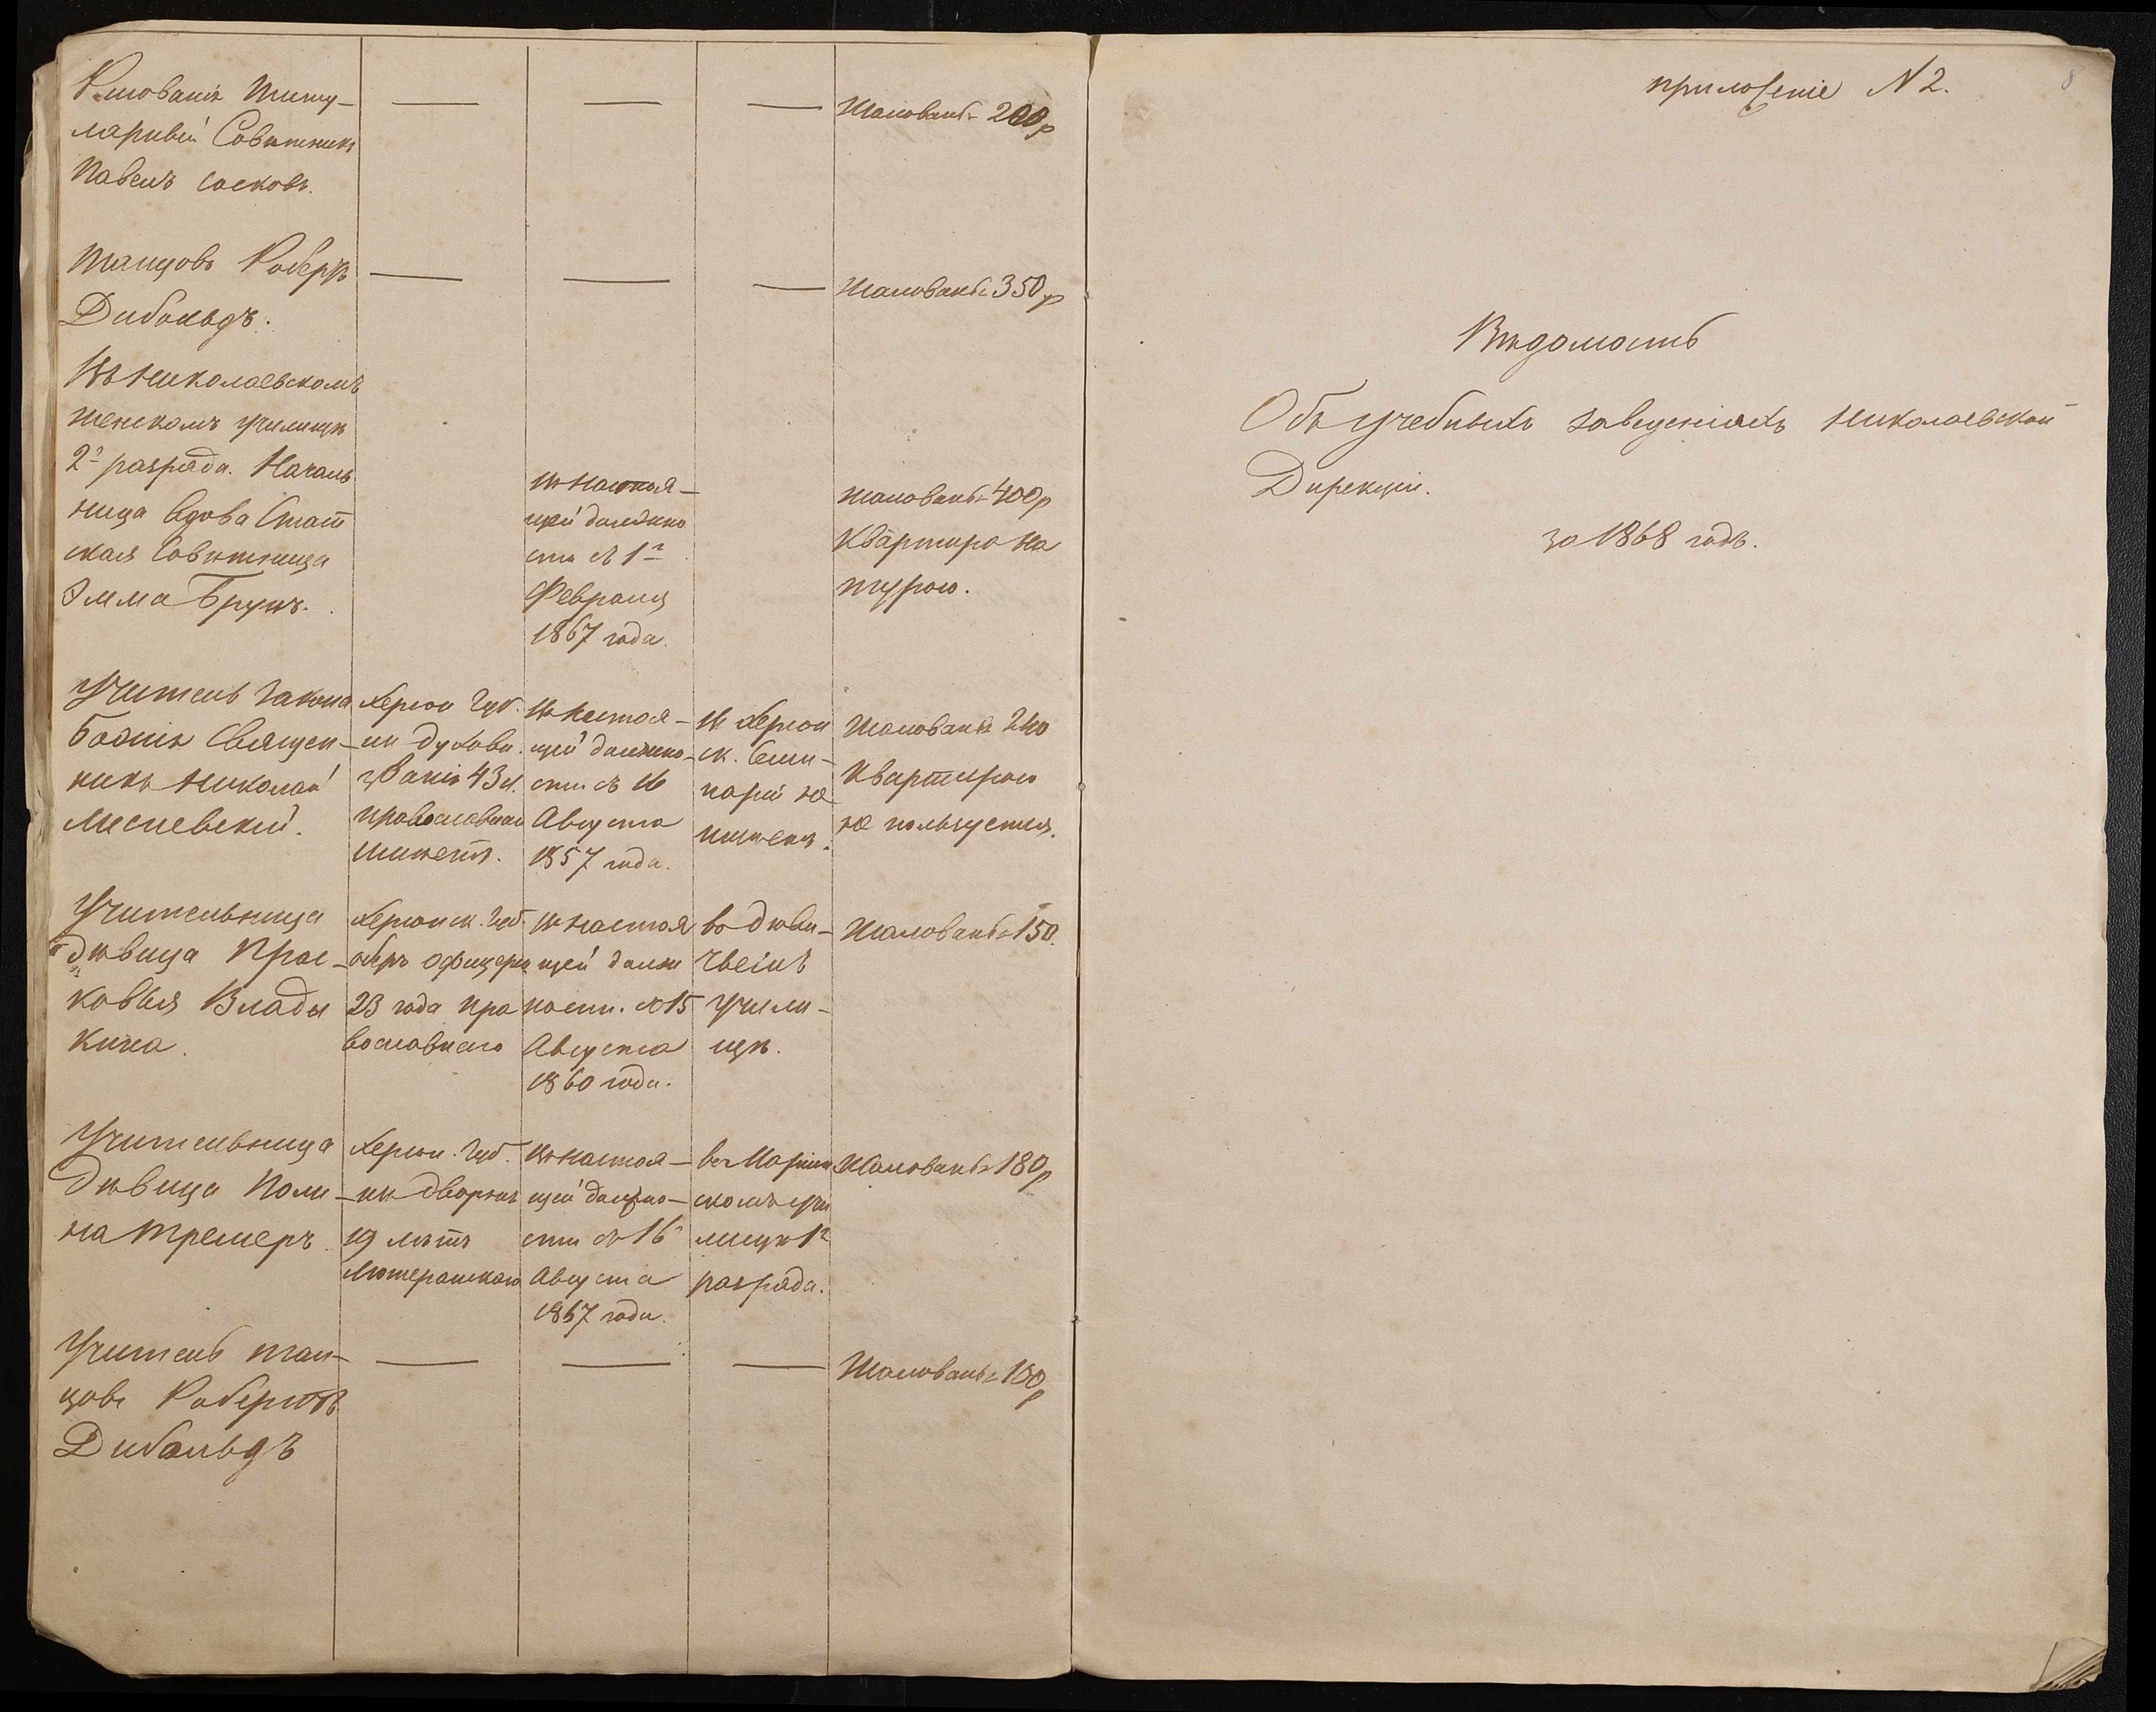 Рисованія Титу-
лярный Совѣтникъ
Павелъ Сосковъ.
Жалованья 200 р
Танцовъ Робертъ
Дибольдъ.
Жалованья 350 р
Въ Николаевскомъ
женскомъ училищѣ
2го разряда. Началь
ница вдова Стат
ская Совѣтница
Эмма Брунъ.
Въ настоя-
щей должно
сти съ 1го
Февраля
1867 года.
Жалованья 400 р
Квартира на
турою.
Учитель Закона
Божія Священ-
никъ Николай
Херсон Губ.
ии Духовн.
званія 43 л.
православнаго
Въ настоя-
щей должно-
сти съ 16
Августа
1857 года.
въ Херсон
ск. Семи-
наріи не
Жалованья 240
Квартирою
не пользуется.
Учительница
дѣвица Прас-
ковья Влады
кина.
Херсонск. Губ.
оберъ офицера
23 года пра
вославнаго
Въ настоя
щей долж
ности съ 15
Августа
1860 года.
въ Дѣви-
чьемъ
Учили-
щѣ.
Жалованья 150.
Учительница
Дѣвица Поли-
на Тремеръ
Херсон. Губ.
ии дворянъ
19 лѣтъ
Лютеранскаго
Въ настоя-
щей должно-
сти съ 16
Августа
1867 года.
въ Маріин
скомъ учи
лищѣ 1го
разряда.
Жалованья 180 р
Учитель тан-
цовъ Робертъ
Дибольдъ
Жалованья 100 р
приложеніе N 2.
8
Вѣдомость
Объ учебныхъ заведеніяхъ Николаевской
Дирекціи.
за 1868 годъ.